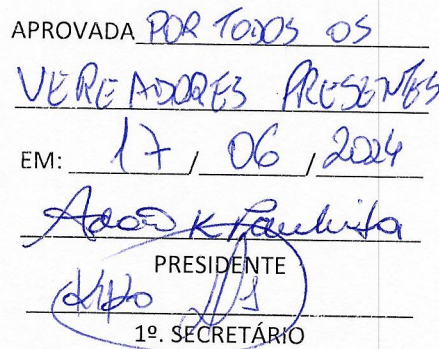 APROVADA POR TODOS OS
VEREADORES PRESENTES
EM: 17 / 06 / 2024
Adão K Paulista
PRESIDENTE
1º. SECRETÁRIO